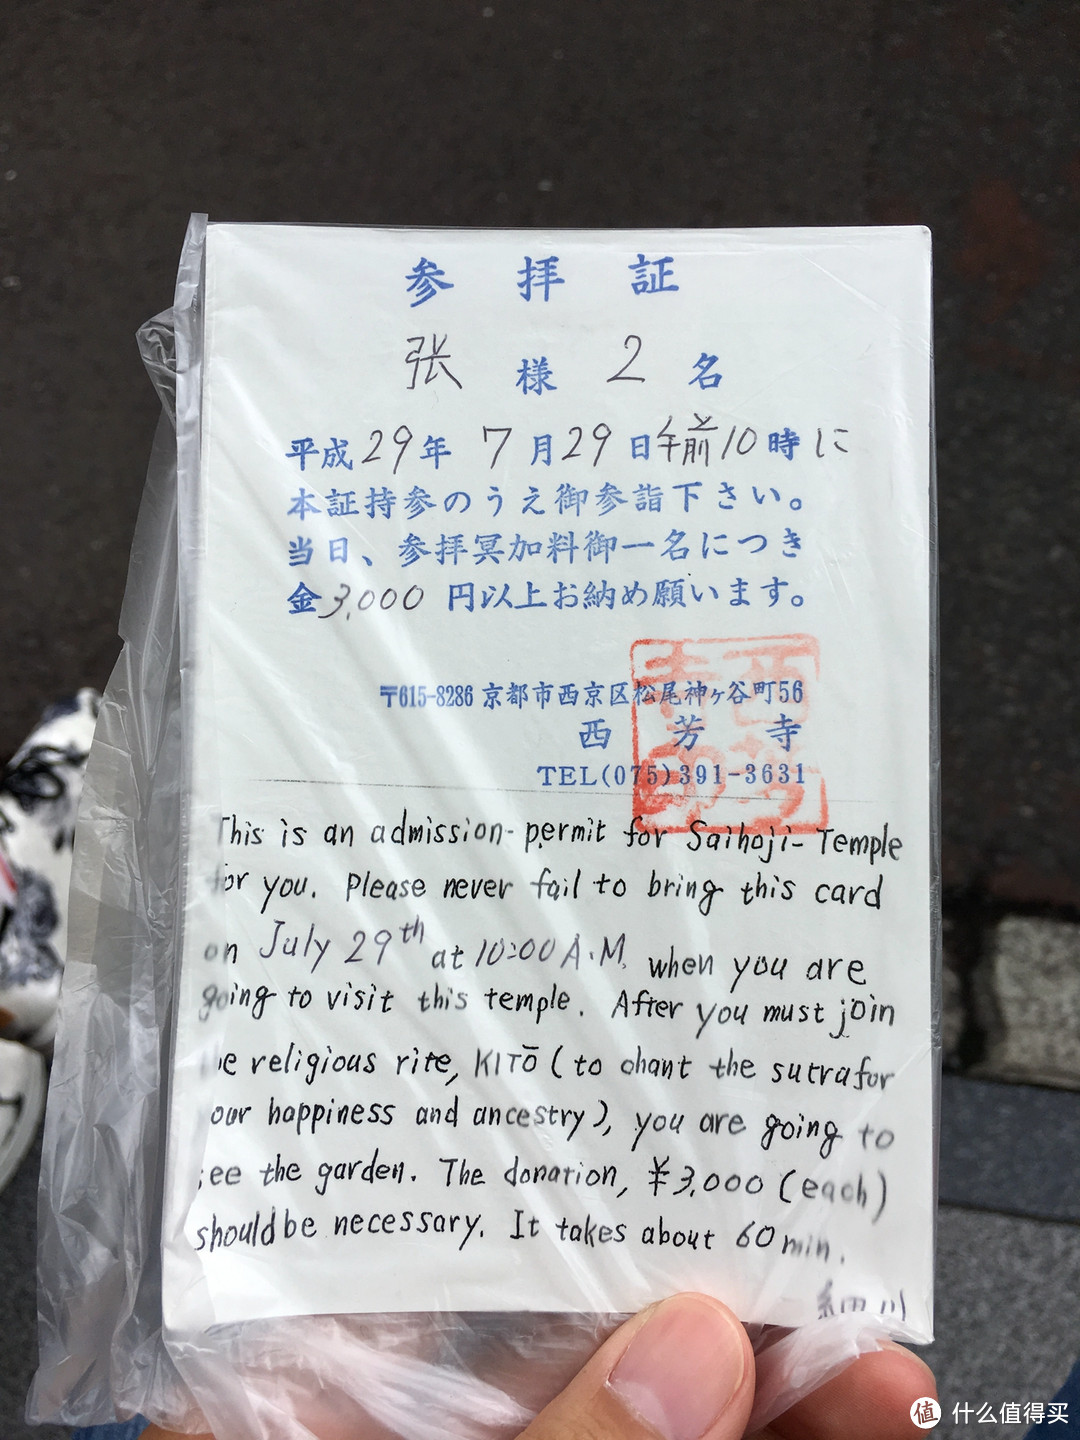 参拝証
张様 2名
平成29年 7月29日午前10時に
本証持参のうえ御参詣下さい。
当日、参拝冥加料御一名につき
金3,000円以上お納め願います。
〒615-8286 京都市西京区松尾神ヶ谷町56
西芳寺
TEL(075)391-3631
This is an admission-permit for Saihoji-Temple
for you. Please never fail to bring this card
on July 29th at 10:00 A.M. when you are
going to visit this temple. After you must join
the religious rite, KITŌ (to chant the sutra for
your happiness and ancestry), you are going to
see the garden. The donation, ¥3,000 (each)
should be necessary. It takes about 60 min.
細川
值 什么值得买